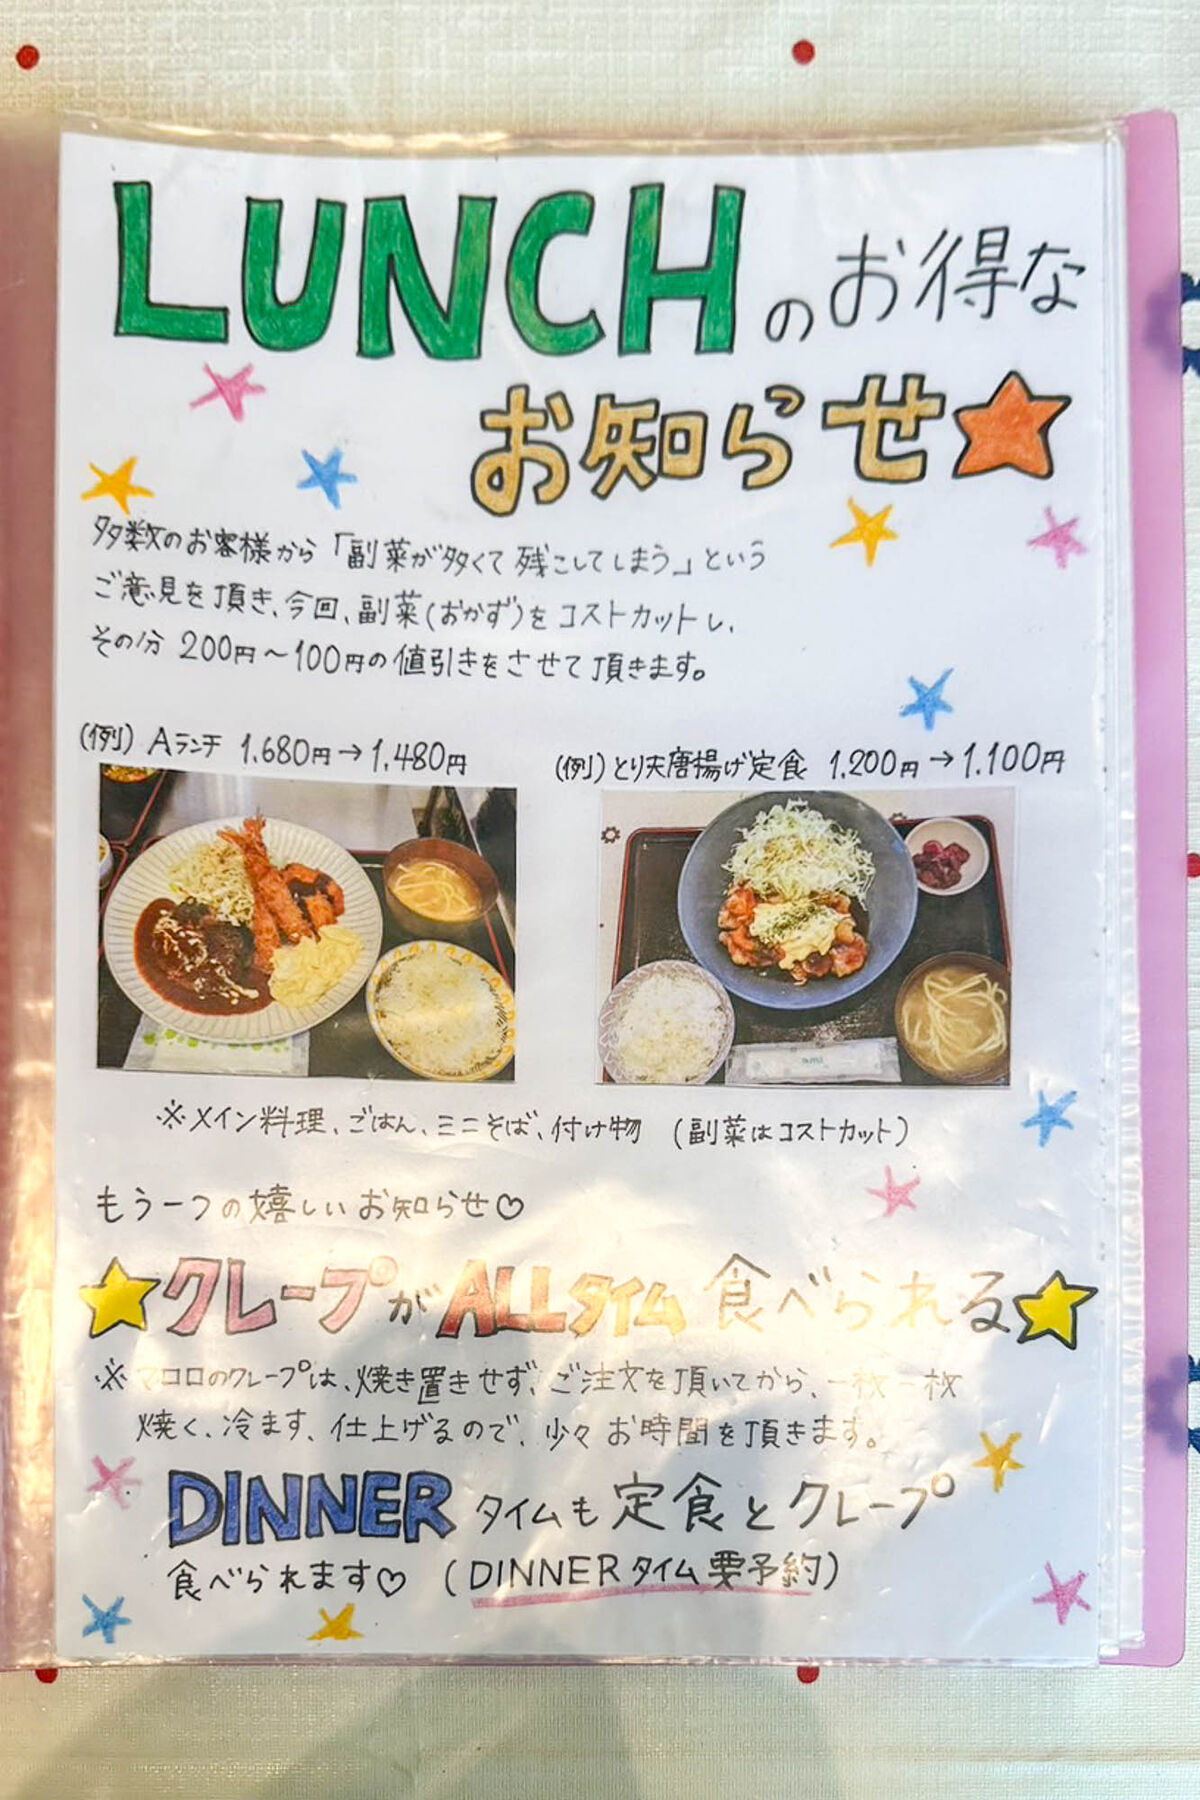 LUNCHのお得な
お知らせ
多数のお客様から「副菜が多くて残こしてしまう」という
ご意見を頂き、今回、副菜(おかず)をコストカットし、
その分 200円〜100円の値引きをさせて頂きます。
(例) Aランチ 1.680円→1.480円
(例) とり天唐揚げ定食 1.200円→1.100円
※メイン料理、ごはん、ミニそば、付け物 (副菜はコストカット)
もう一つの嬉しいお知らせ♡
★クレープがALLタイム食べられる★
※マコロのクレープは、焼き置きせず、ご注文を頂いてから、一枚一枚
焼く、冷ます、仕上げるので、少々お時間を頂きます。
DINNERタイムも定食とクレープ
食べられます♡ (DINNERタイム要予約)